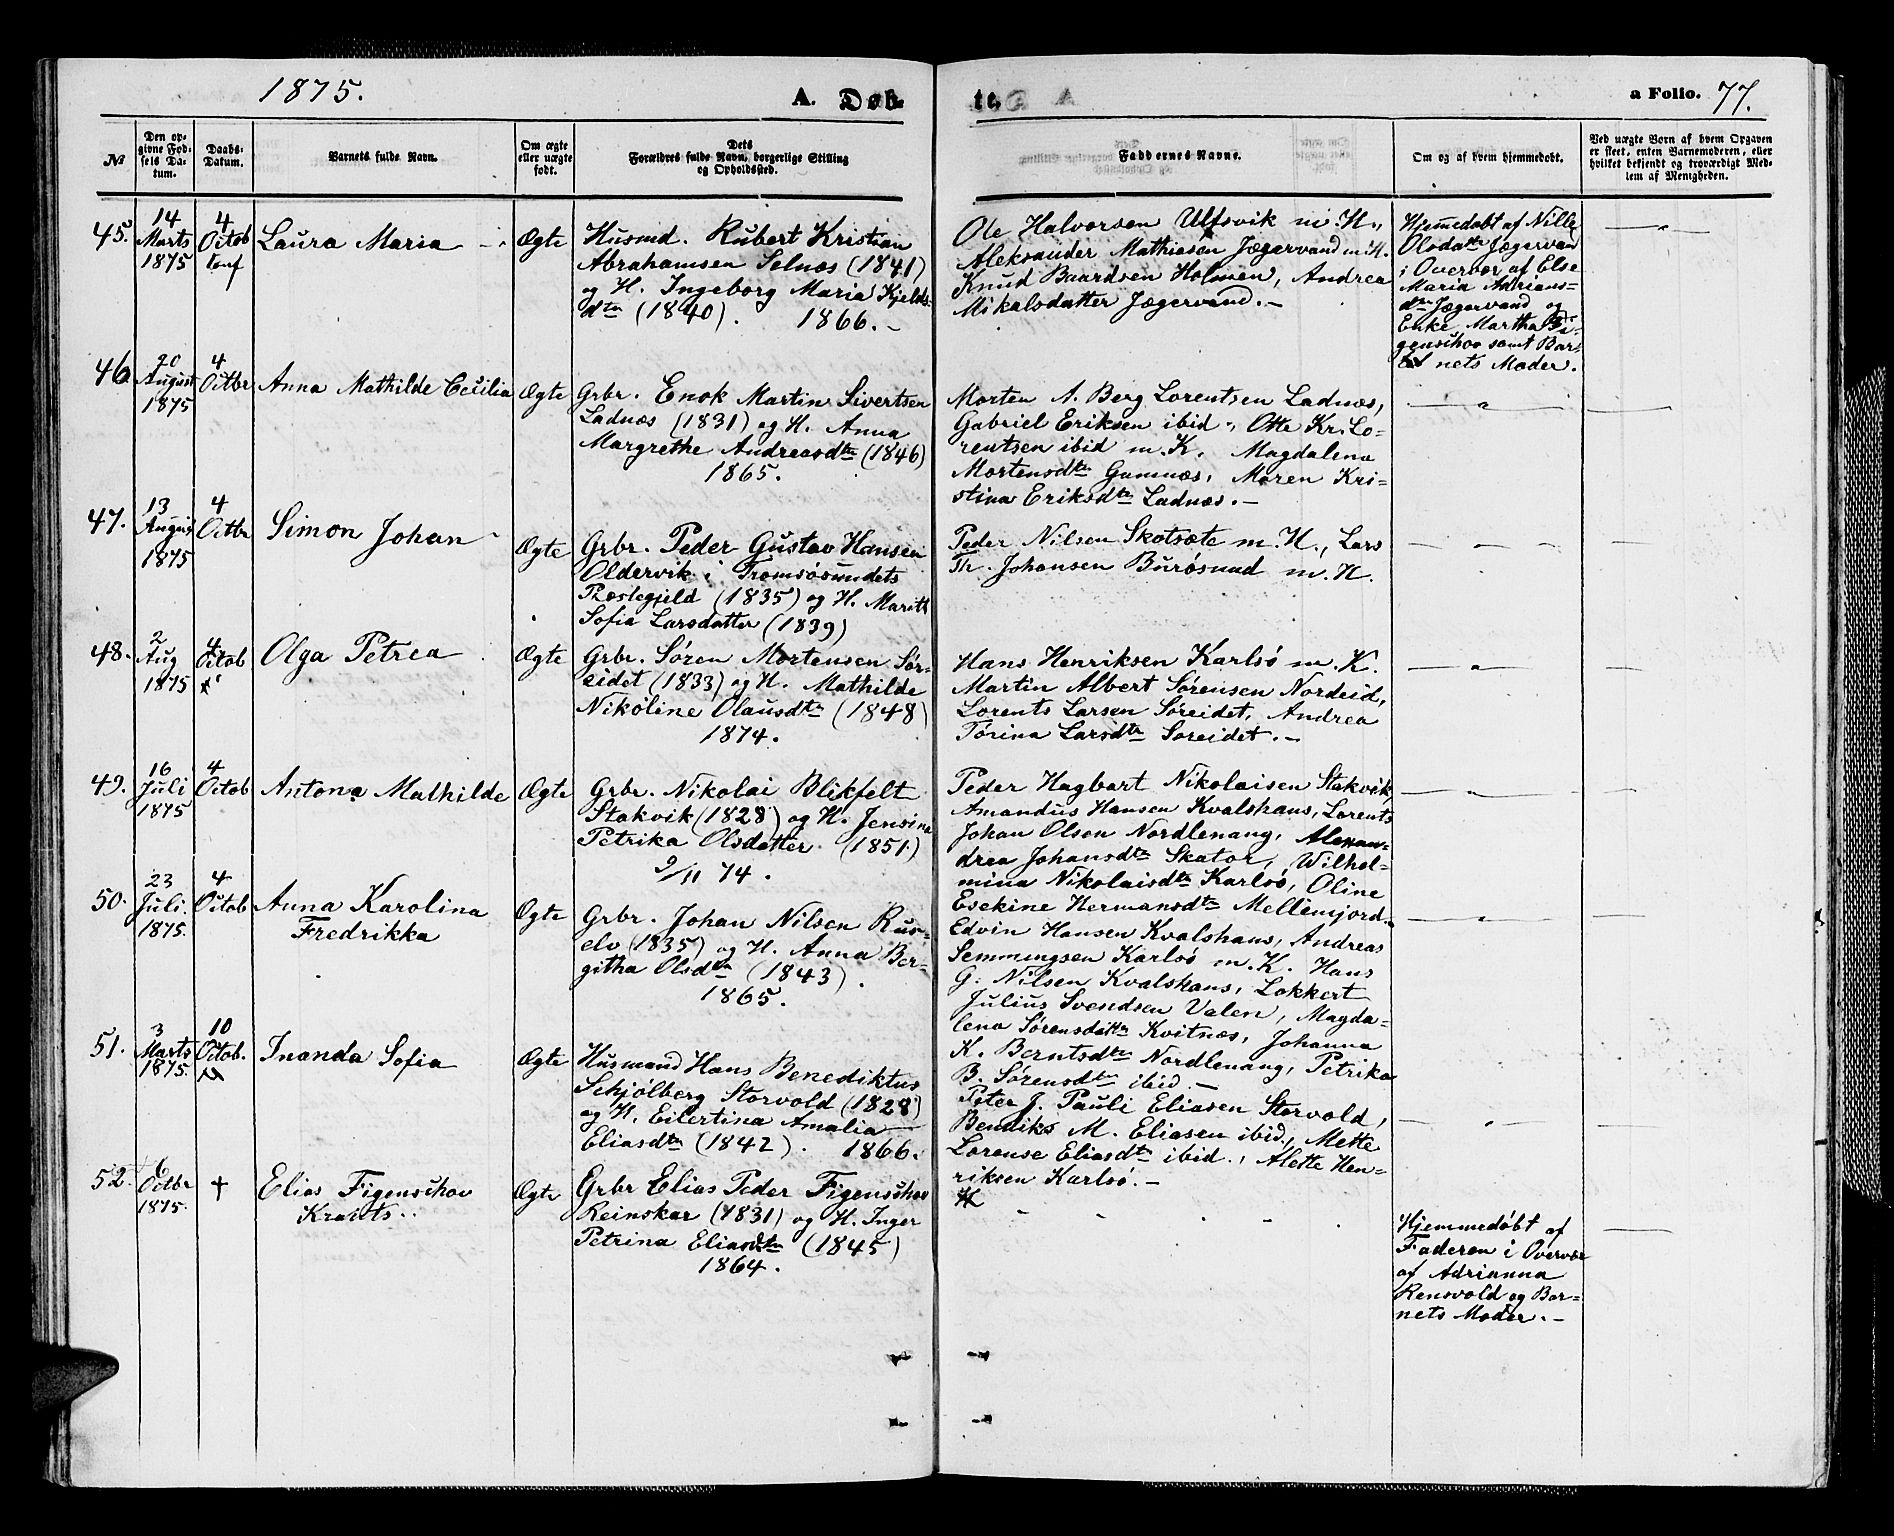 1875.
A. Døb-
te.
a Folio. 77.
№
Den op-
givne Fød-
sels Da-
tum.
Daabs-
Datum.
Barnets fulde Navn.
Om ægte
eller uægte
født.
Dets
Forældres fulde Navn, borgerlige Stilling
og Opholdssted.
Faddernes Navne.
Om og af hvem hjemmedøbt.
Ved uægte Børn af hvem Opgaven
er skeet, enten Barnemoderen, eller
hvilket bekjendt og troværdigt Med-
lem af Menigheden.
45.
14
Marts
1875
4
Octob
conf
Laura Maria
Ægte
Husmd. Rubert Kristian
Abrahamsen Selnæs (1841)
og H. Ingeborg Maria Kjelds-
dtr (1840). 1866.-
Ole Halvorsen Ulfsvik m H.,
Aleksander Mathiesen Jægervand m. H.
Knud Baardsen Holmen, Andrea
Mikalsdatter Jægervand.-
Hjemmedøbt af Nille
Olsdatr Jægervan
i Overvær af Else
Maria Adrians-
dtr Jægervand og
Enke Martha Fi-
genschov samt Bar-
nets Moder.
46
20
August
1875
4
Octbr
Anna Mathilde Cecilia
Ægte
Grbr. Enok Martin Sivertsen
Ladnæs (1831) og H. Anna
Margrethe Andreasdtr (1846)
1865.
Morten A. Berg Lorentsen Ladnæs,
Gabriel Eriksen ibid., Otte Kr. Lo-
rentsen ibid m. K. Magdalena
Mortensdtr Gamnæs, Maren Kri-
stina Eriksdtr Ladnæs.-
47.
13
August
1875
4
Octbr
Simon Johan
Ægte
Grbr. Peder Gustav Hansen
Oldervik i Tromsøsundets
Præstegjeld (1835) og H. Marith
Sofia Larsdatter (1839)
Peder Nilsen Skotsæte m. H., Lars
Th. Johansen Burøsund m. H.
48.
2
Aug
1875
4
Octob
Olga Petrea
Ægte
Grbr. Søren Mortensen Sør-
eidet (1833) og H. Mathilde
Nikoline Olausdtr (1848)
1874.
Hans Henriksen Karlsø m. K.
Martin Albert Sørensen Nordeid,
Lorents Larsen Søreidet, Andrea
Tørina Larsdtr Søreidet.-
49.
16
Juli
1875
4
Octob
Antona Mathilde
Ægte
Grbr. Nikolai Blikfelt
Stakvik (1828) og H. Jensina
Petrika Olsdatter (1851)
9/11 74.
Peder Hagbart Nikolaisen Stakvik,
Amandus Hansen Kvalshaus, Lorents
Johan Olsen Nordlenang, Alexan-
drea Johansdtr Skator, Wilhel-
mina Nikolaisdtr Karlsø, Oline
Esekine Hermansdtr Mellemjord.
50.
23
Juli.
1875.
4
Octob
Anna Karolina
Fredrikka
Ægte
Grbr. Johan Nilsen Rus-
elv (1835) og H. Anna Ber-
githa Olsdtr (1843).
1865.
Edvin Hansen Kvalshaus, Andreas
Semmingsen Karlsø m. K. Hans
G. Nilsen Kvalshaus, Lokkert
Julius Svendsen Valen, Magda-
lena Sørensdatr Kvitnæs, Johanna
K. Berntsdtr Nordlenang, Petrika
B. Sørensdtr ibid.-
51.
3
Marts
1875.
10
Octob.
Inanda Sofia
Ægte
Husmand Hans Benediktus
Schjølberg Storvold (1828)
og H. Eilertina Amalia
Eliasdtr (1842). 1866.
Peter J. Pauli Eliasen Storvold,
Bendiks M. Eliasen ibid., Mette
Lorense Eliasdtr ibid., Alette Hen-
riksen Karlsø.-
52.
6
Octbr
1875.
†
Elias Figenschov
Krants..
Ægte
Grbr Elias Peder Figenschov
Reinskar (1831) og H. Inger
Petrina Eliasdtr (1845)
1864.
Hjemmedøbt af
Faderen i Overvær
af Adrianna
Rensvold og Bar-
nets Moder.-